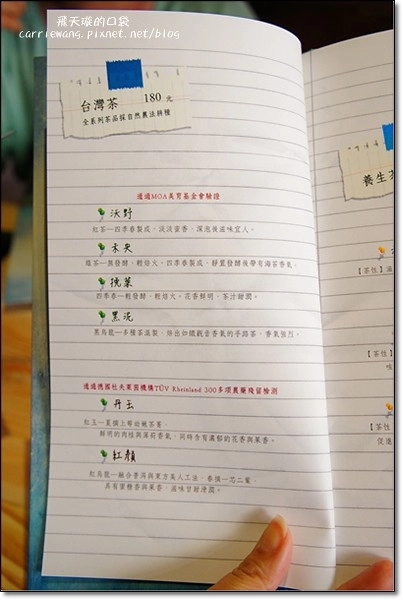 飛天璇的口袋
carriewang.pixnet.net/blog
台灣茶 180 元
全系列茶品採自然農法耕種
通過MOA美育基金會驗證
沃野
紅茶—四季春製成，淡淡蜜香，深泡後滋味宜人。
未央
綠茶—無發酵、輕焙火。四季春製成，靜置發酵後帶有海苔香氣。
琉葉
四季春—輕發酵、輕焙火。花香鮮明，茶汁甜潤。
黑泥
黑烏龍—多種茶混製，焙出如鐵觀音香氣的手路茶，香氣強烈。
通過德國杜夫萊茵機構TÜV Rheinland 300多項農藥殘留檢測
丹玉
紅玉—夏摘上等幼嫩茶菁，
鮮明的肉桂與薄荷香氣，同時含有濃郁的花香與果香。
紅顏
紅烏龍—融合普洱與東方美人工法，春摘一芯二葉，
具有蜜糖香與果香，滋味甘甜滑潤。
養生茶
【茶性】
【茶性】
【茶性】
促進